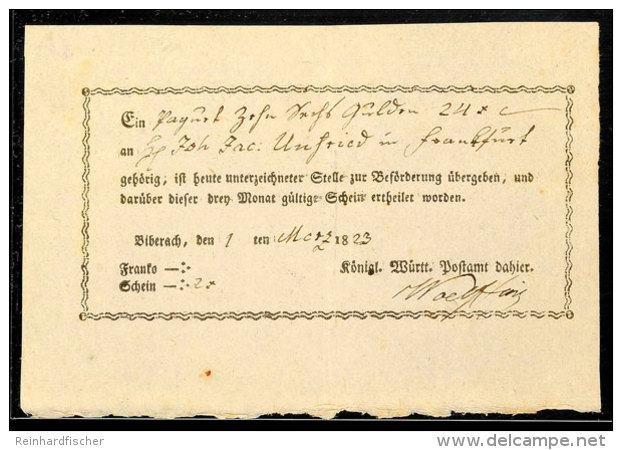 Ein Paquet Zehn Sechs Gulden 24 x
an Joh Jac: Unfried in Frankfurt
gehörig, ist heute unterzeichneter Stelle zur Beförderung übergeben, und
darüber dieser drey Monat gültige Schein ertheilet worden.
Biberach, den 1 ten Merz 1823
Franko —:
Königl. Württ. Postamt dahier.
Schein —: 2 x
Reinhardfischer
©delcampe.net